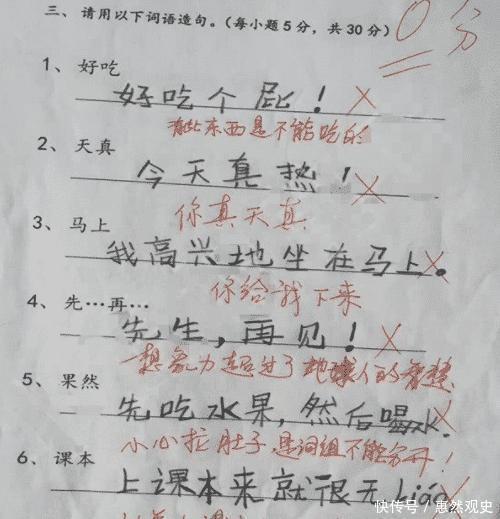 三、请用以下词语造句。(每小题5分，共30分)
0分
1、好吃
好吃个屁！
有些东西是不能吃的
2、天真
今天真热！
你真天真
3、马上
我高兴地坐在马上。
你给我下来
4、先…再…
先生，再见！
想象力超过了地球人的智慧
5、果然
先吃水果，然后喝水.
小心拉肚子,是词组不能分开！
6、课本
上课本来就很无liáo
快传号/惠然观史